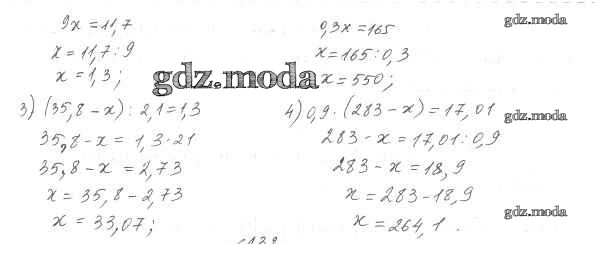 9x = 11,7
x = 11,7 : 9
x = 1,3 ;
3) (35,8 - x) : 2,1 = 1,3
35,8 - x = 1,3 · 21
35,8 - x = 2,73
x = 35,8 - 2,73
x = 33,07 ;
0,3x = 165
x = 165 : 0,3
x = 550 ;
4) 0,9 · (283 - x) = 17,01
283 - x = 17,01 : 0,9
283 - x = 18,9
x = 283 - 18,9
x = 264,1 .
gdz.moda
gdz.moda
gdz.moda
gdz.moda